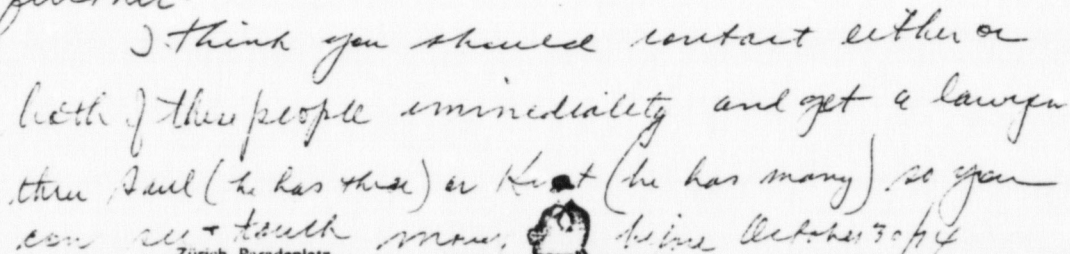 I think you should contact either or
both of these people immediately and get a lawyer
thru Saul (he has three) or Kent (he has many) so you
can see + touch money before October 30/74
Zürich Paradeplatz